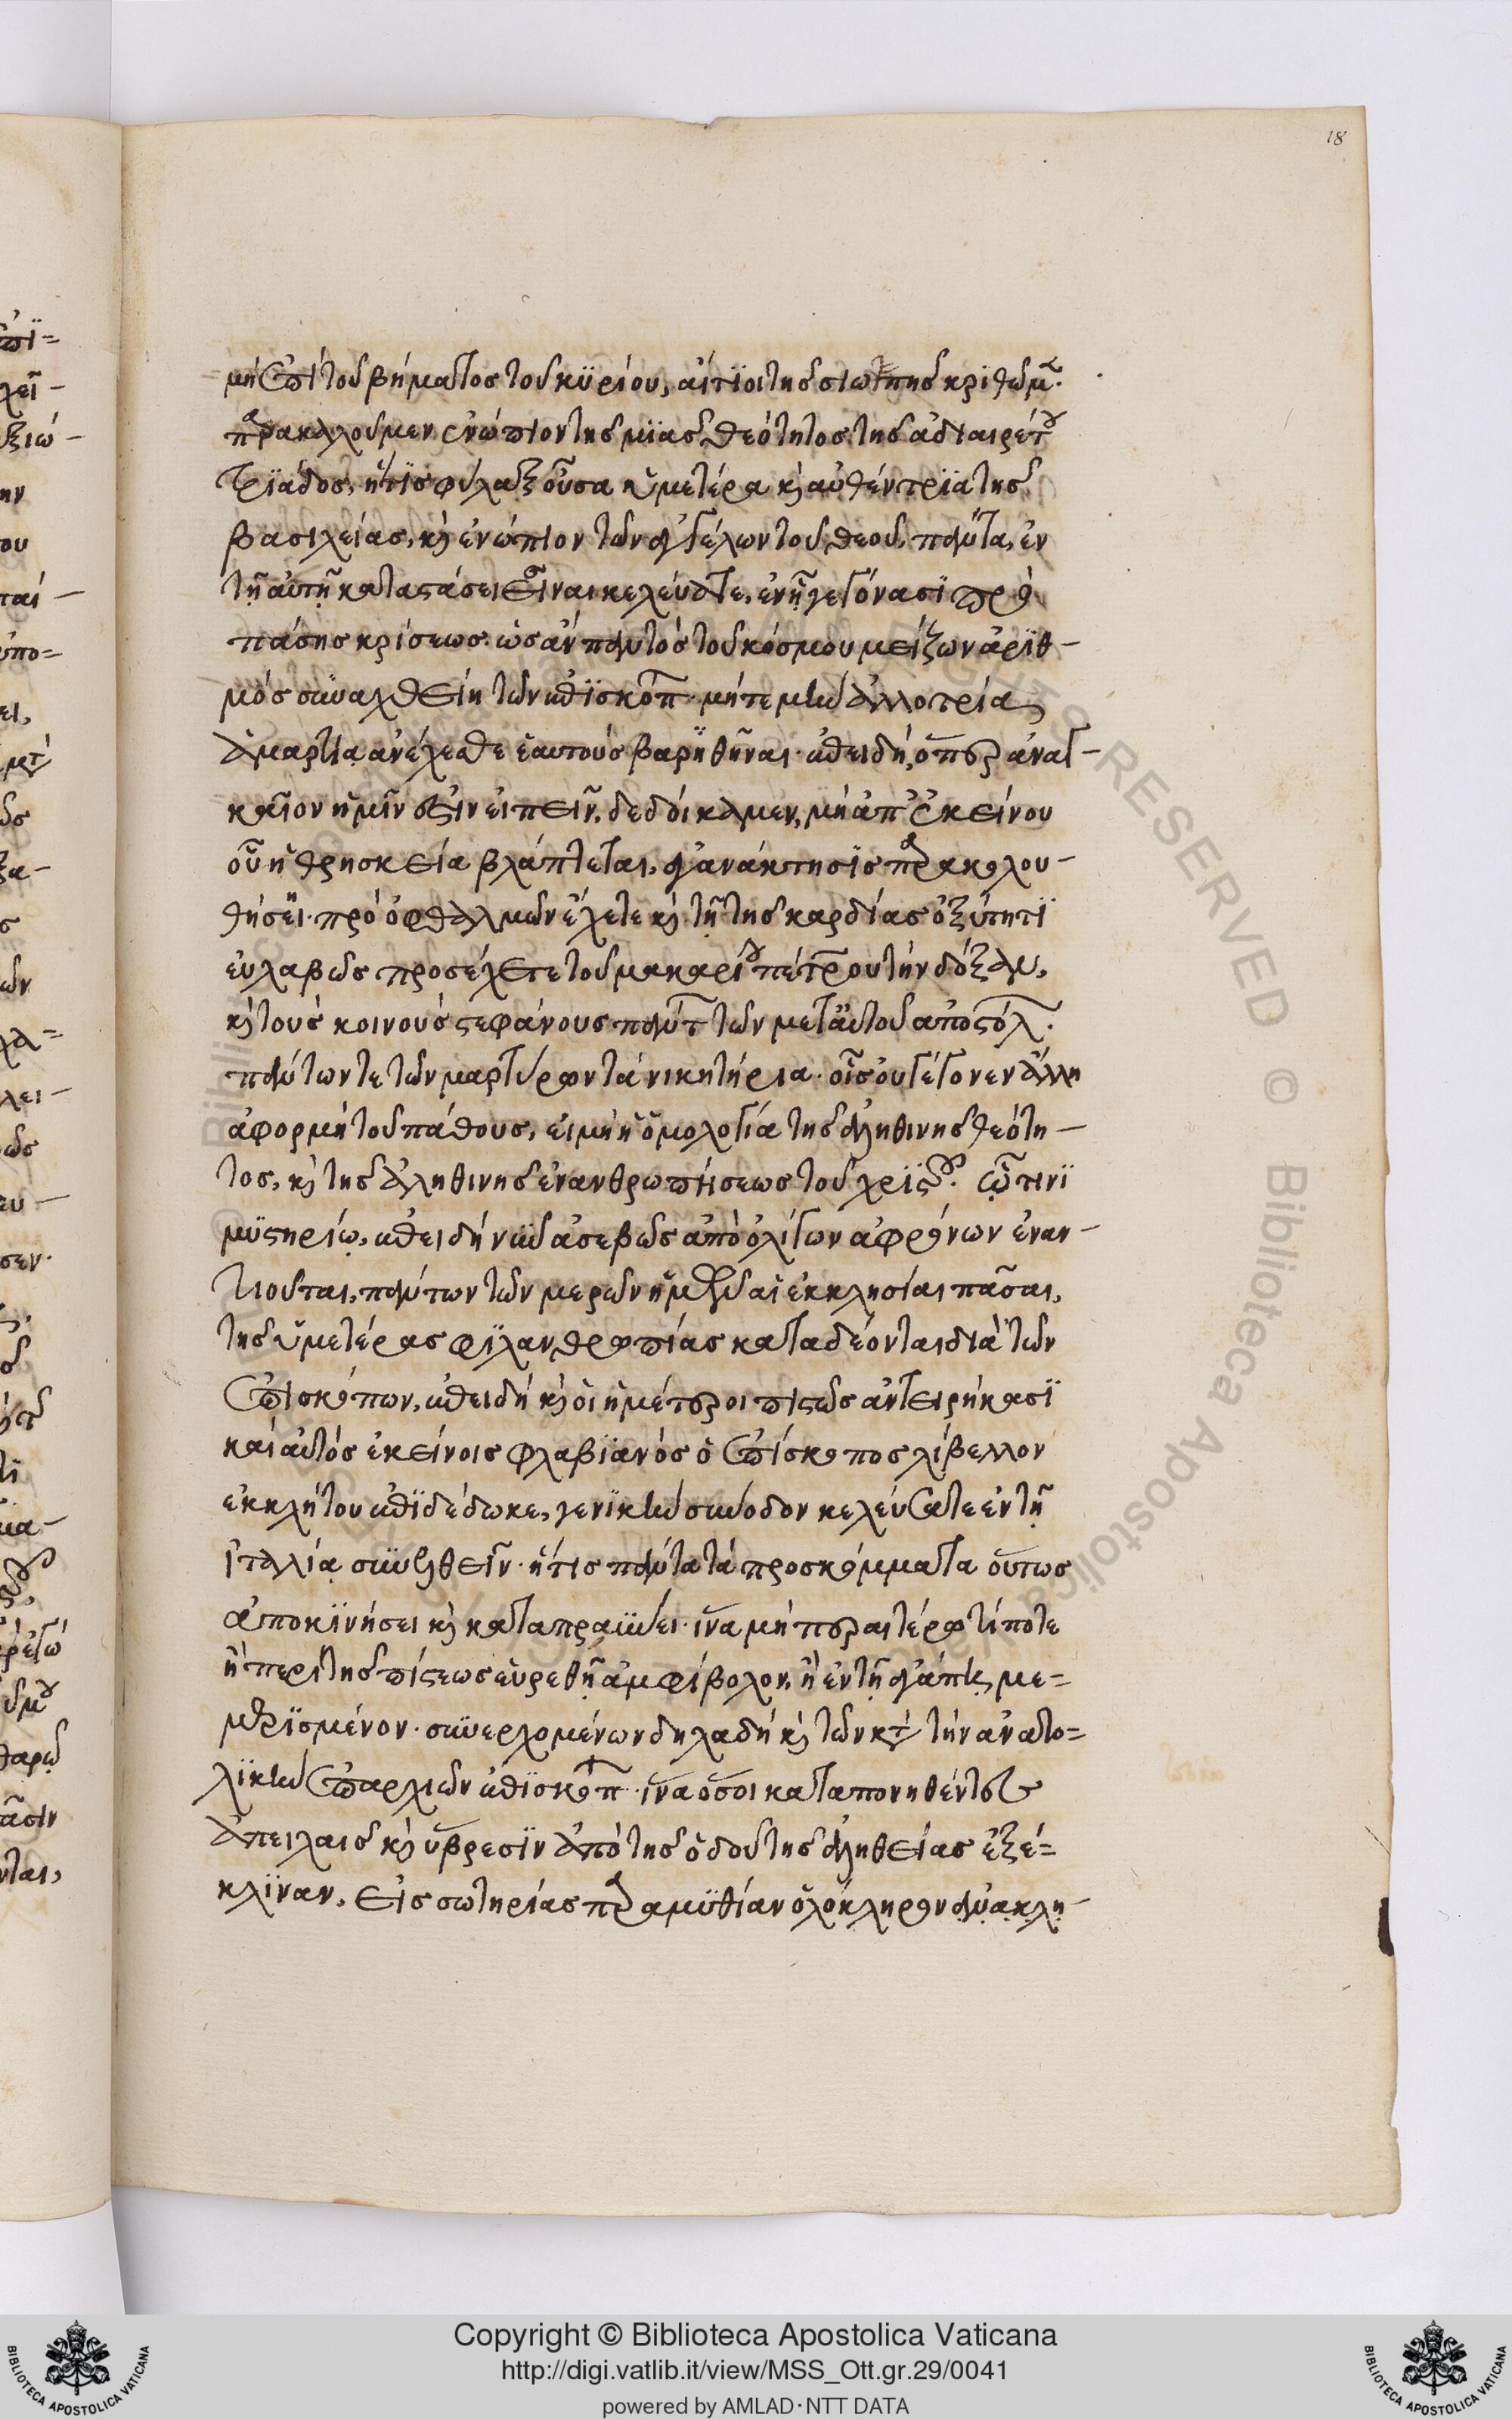 18
μὴ ἐπὶ τοῦ βήματος τοῦ κϋρίου, αἴτϊοι τῆς σιωπῆς κρϊθῶμ.
παρακαλοῦμεν ἐνώπιον τῆς μϊᾶς θεότητος τῆς ἀδιαιρέτου
τρϊάδος, ἥτϊς φύλαξ οὖσα ὑμετέρα κ αὐθέντρϊα τῆς
βασιλείας, κ ἐνώπιον τῶν ἀγγέλων τοῦ θεοῦ, πάντα, ἐν
τῇ αὐτῇ καταστάσει εἶναι κελεύσατε, ἐν ᾗ γεγόνασϊ πρὸ
πάσης κρίσεως. ὡσὰν παντὸς τοῦ κόσμου μείζων ἀρϊθ-
μὸς συναχθείη τῶν ἐπϊσκόπ. μήτε μὴν ἀλλοτρία
ἁμαρτία ἀνέχεσθε ἑαυτοὺς βαρηθῆναι. ἐπειδὴ, ὅπερ ἀναγ-
καῖον ἡμῖν ἐστὶν εἰπεῖν, δεδοίκαμεν, μὴ ἀπ' ἐκείνου
οὗ ἡ θρησκεία βλάπτεται, ἀγανάκτησϊς παρακολου-
θήσει. πρὸ ὀφθαλμῶν ἔχετε κ τῇ τῆς καρδίας ὀξύτητϊ
εὐλαβῶς προσέχετε τοῦ μακαρίου πέτρου τὴν δόξαν,
κ τοὺς κοινοὺς στεφάνους πάντ τῶν μετ' αὐτοῦ ἀποστόλ.
πάντων τε τῶν μαρτύρων τὰ νικητήρια. οἷς οὐ γέγονεν ἄλλη
ἀφορμὴ τοῦ πάθους, εἰ μὴ ἡ ὁμολογία τῆς ἀληθινῆς θεότη-
τος, κ τῆς ἀληθινῆς ἐνανθρωπήσεως τοῦ χρϊστοῦ. ᾧ τινϊ
μϋστηρίῳ, ἐπειδὴ νῦν ἀσεβῶς ἀπὸ ὀλίγων ἀφρόνων ἐναν-
τιοῦται, πάντων τῶν μερῶν ἡμῶν αἱ ἐκκλησίαι πᾶσαι,
τῆς ὑμετέρας φϊλανθρωπίας καταδέονται διὰ τῶν
ἐπισκόπων, ἐπειδὴ κ οἱ ἡμέτεροι πιστῶς ἀντειρήκασϊ
καὶ αὐτὸς ἐκείνοις φλαβϊανὸς ὁ ἐπίσκοπος λίβελλον
ἐκκλήτου ἐπϊδέδωκε, γενϊκὴν σύνοδον κελεύσατε ἐν τῇ
ἰταλίᾳ συναχθεῖν. ἥτις πάντα τὰ προσκόμματα οὕτως
ἀποκϊνήσει κ καταπραΰνει. ἵνα μὴ περαιτέρω τίποτε
ἢ περὶ τῆς πίστεως εὑρεθῇ ἀμφίβολον, ἢ ἐν τῇ ἀγάπῃ με=
μερϊσμένον. συνερχομένων δηλαδὴ κ τῶν κατὰ τὴν ἀνατο=
λϊκὴν ἐπαρχιῶν ἐπϊσκόπ. ἵνα ὅσοι καταπονηθέντες
ἀπειλαῖς κ ὕβρεσϊν ἀπὸ τῆς ὁδοῦ τῆς ἀληθείας ἐξέ=
κλϊναν, εἰς σωτηρίας παραμϋθίαν ὁλόκληρον ἀνακλη-
Copyright © Biblioteca Apostolica Vaticana
http://digi.vatlib.it/view/MSS_Ott.gr.29/0041
powered by AMLAD·NTT DATA